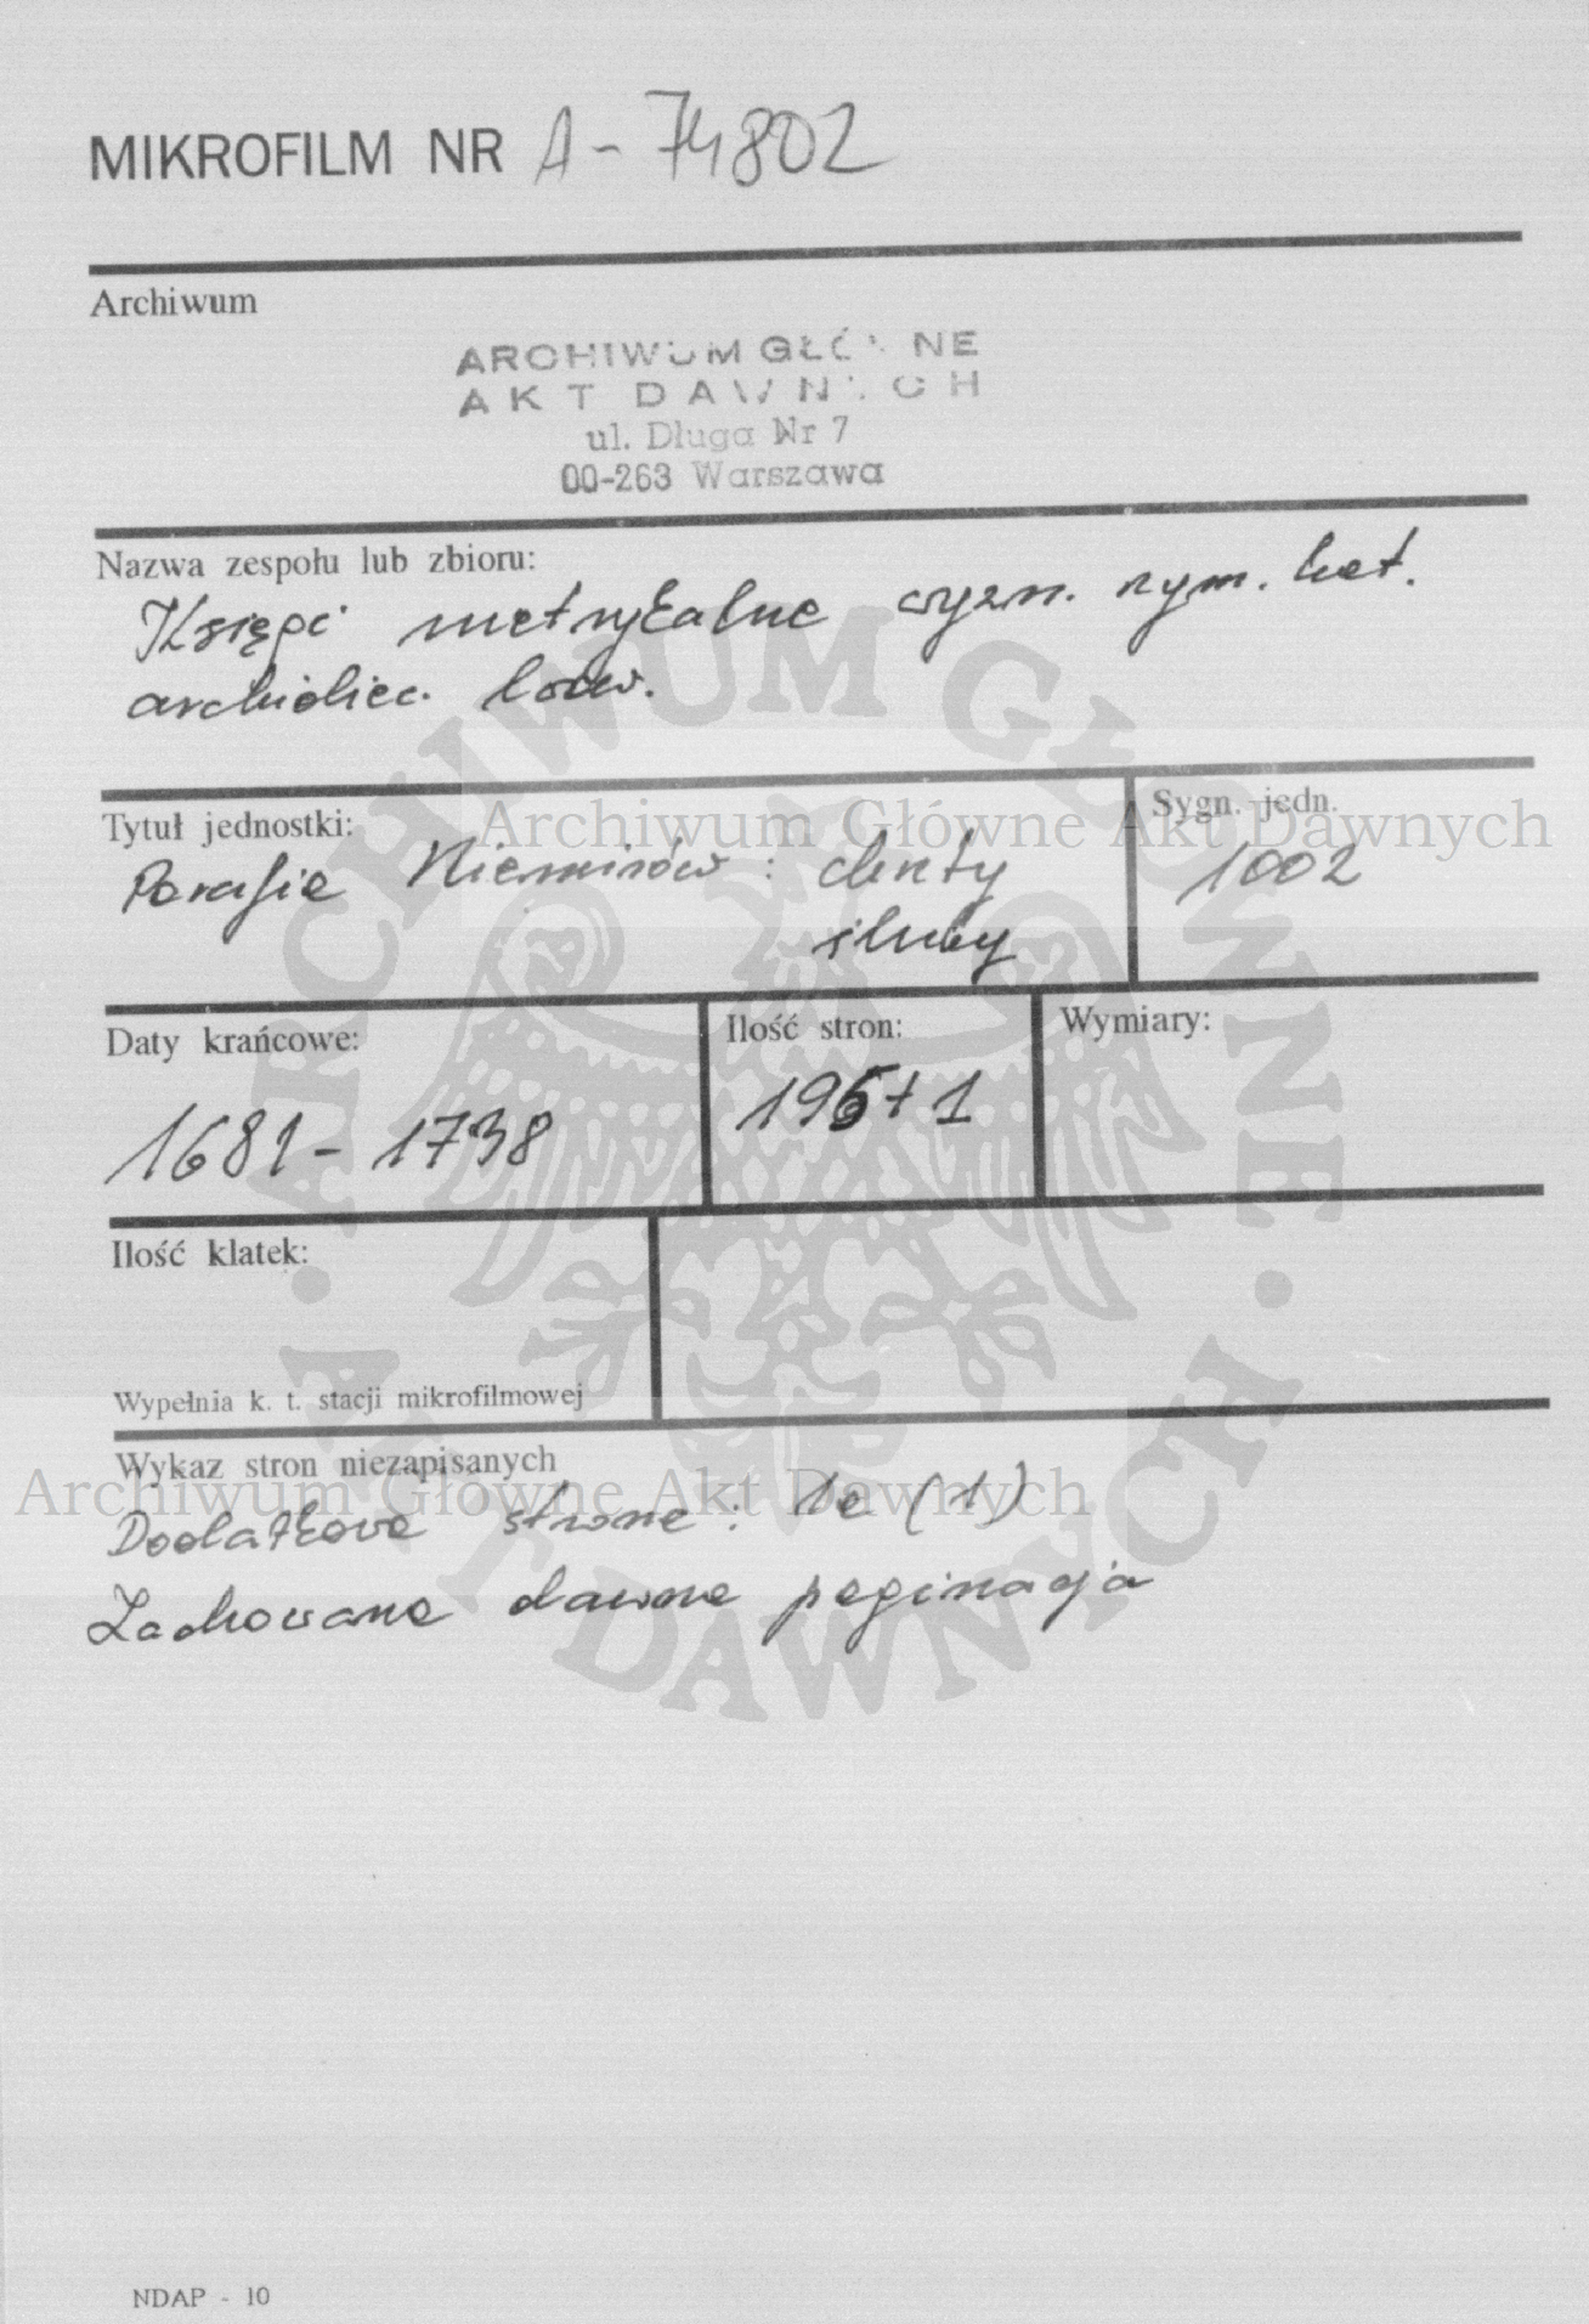 MIKROFILM NR A-74802
Archiwum
ARCHIWUM GŁÓWNE
AKT DAWNYCH
ul. Długa Nr 7
00-263 Warszawa
Nazwa zespołu lub zbioru:
Księgi metrykalne wyzn. rzym. kat.
archidiec. lwow.
Tytuł jednostki:
Parafia Niemirów: chrzty
śluby
Sygn. jedn.
1002
Daty krańcowe:
1681-1738
Ilość stron:
196+1
Wymiary:
Ilość klatek:
Wypełnia k. t. stacji mikrofilmowej
Wykaz stron niezapisanych
Dodatkowa strona: 1a (1)
Zachowana dawna paginacja
NDAP - 10
Archiwum Główne Akt Dawnych
Archiwum Główne Akt Dawnych
ARCHIWUM GŁÓWNE AKT DAWNYCH